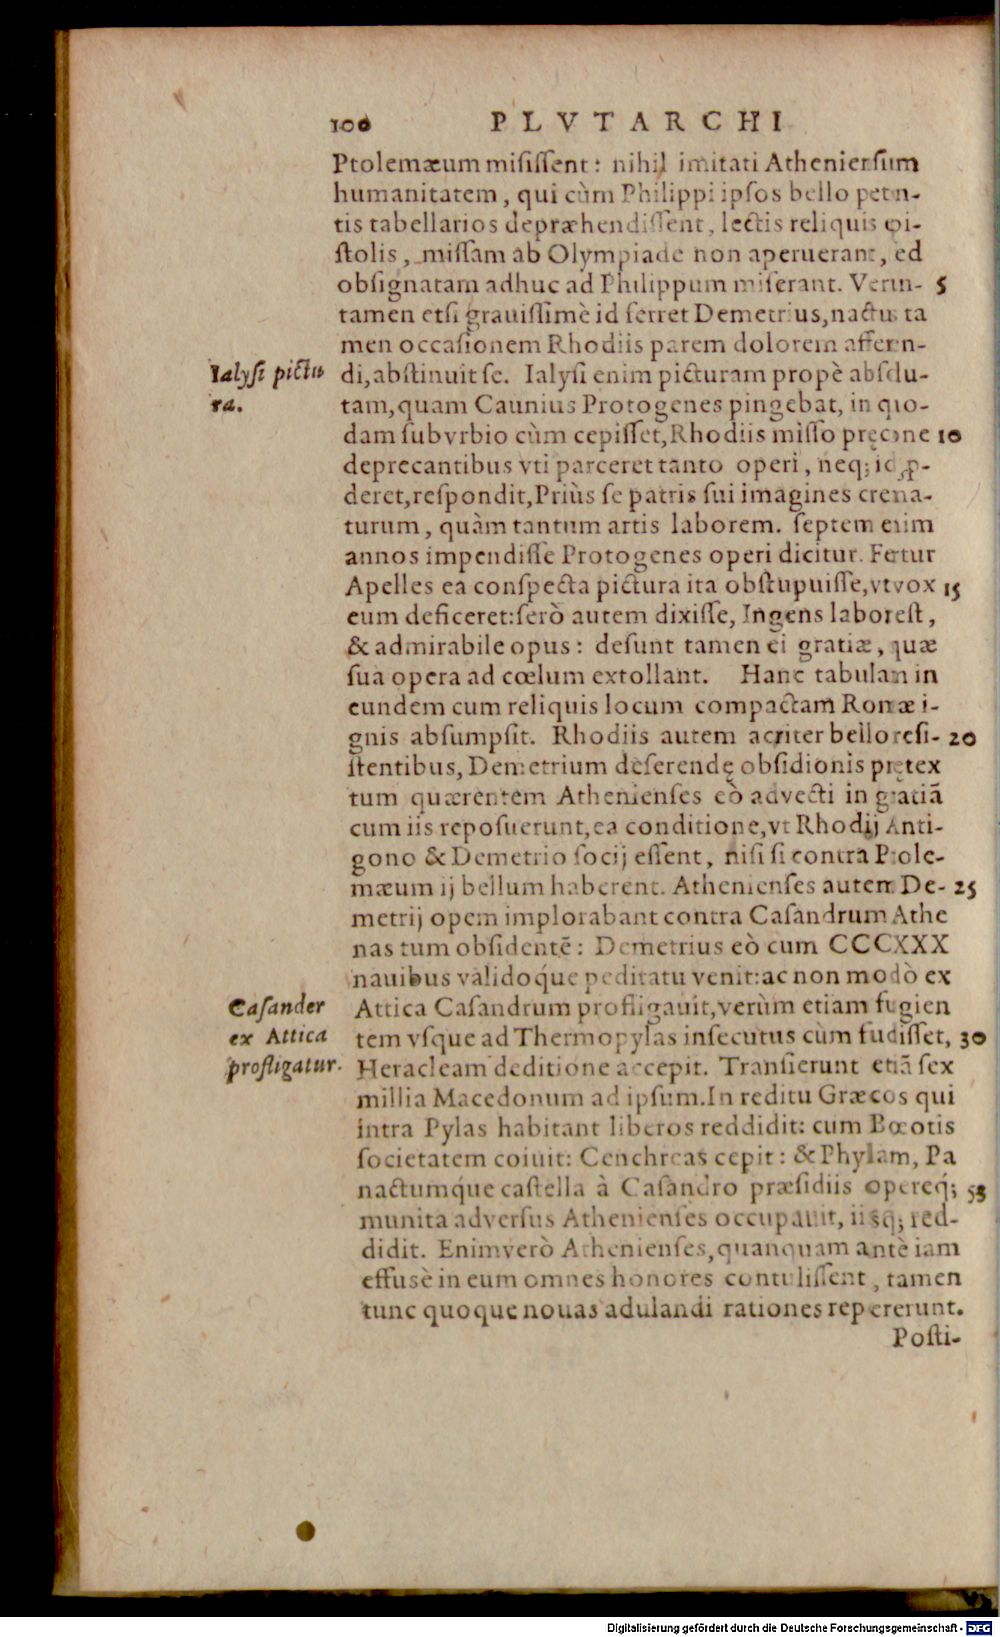 100 PLVTARCHI
Ptolemæum misissent: nihil imitati Atheniensium
humanitatem, qui cùm Philippi ipsos bello peten-
tis tabellarios depræhendissent, lectis reliquis epi-
stolis, missam ab Olympiade non aperuerant, sed
obsignatam adhuc ad Philippum miserant. Verun- 5
tamen etsi grauissimè id ferret Demetrius, nactus ta
men occasionem Rhodiis parem dolorem afferen-
Ialysi pictu di, abstinuit se. Ialysi enim picturam propè absolu-
ra. tam, quam Caunius Protogenes pingebat, in quo-
dam subvrbio cùm cepisset, Rhodiis misso pręcone 10
deprecantibus vti parceret tanto operi, neq; id ꝓ-
deret, respondit, Priùs se patris sui imagines crema-
turum, quàm tantum artis laborem. septem enim
annos impendisse Protogenes operi dicitur. Fertur
Apelles ea conspecta pictura ita obstupuisse, vt vox 15
eum deficeret: serò autem dixisse, Ingens laborest,
& admirabile opus: desunt tamen ei gratiæ, quæ
sua opera ad cœlum extollant. Hanc tabulam in
eundem cum reliquis locum compactam Romæ i-
gnis absumpsit. Rhodiis autem acriter bello resi- 20
stentibus, Demetrium deserendę obsidionis prętex
tum quærentem Athenienses eò advecti in gratiā
cum iis reposuerunt, ea conditione, vt Rhodij Anti-
gono & Demetrio socij essent, nisi si contra Ptole-
mæum ij bellum haberent. Athenienses autem De- 25
metrij opem implorabant contra Casandrum Athe
nas tum obsidentē: Demetrius eò cum CCCXXX
nauibus validoq́ue peditatu venit: ac non modò ex
Casander Attica Casandrum profligauit, verùm etiam fugien
ex Attica tem vsque ad Thermopylas insecutus cùm fudisset, 30
profligatur. Heracleam deditione accepit. Transierunt etiā sex
millia Macedonum ad ipsum. In reditu Græcos qui
intra Pylas habitant liberos reddidit: cum Bœotis
societatem coiuit: Cenchreas cepit: & Phylam, Pa
nactumq́ue castella à Casandro præsidiis opereq́; 35
munita adversus Athenienses occupauit, iisq; red-
didit. Enimverò Athenienses, quanquam antè iam
effusè in eum omnes honores contulissent, tamen
tunc quoque nouas adulandi rationes repererunt.
Posti-
Digitalisierung gefördert durch die Deutsche Forschungsgemeinschaft - DFG